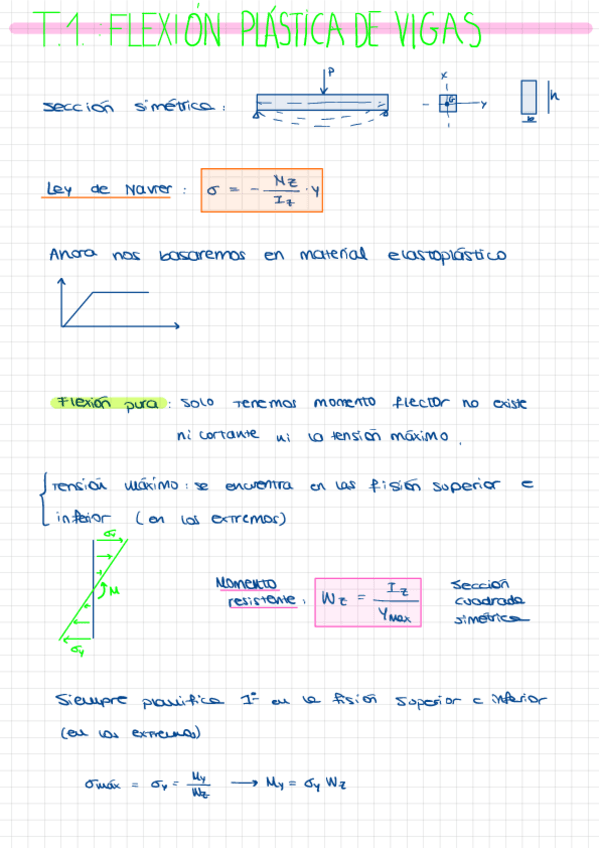 T.1. FLEXIÓN PLÁSTICA DE VIGAS
sección simétrica :
P
x
G
y
h
b
Ley de Navier : σ = - Mz / Iz · y
Ahora nos basaremos en material elastoplástico
Flexión pura : solo tenemos momento flector no existe
ni cortante ni la tensión máximo.
Tensión máximo : se encuentra en las fisión superior e
inferior (en los extremos)
σy
M
σy
Momento
resistente :
Wz = Iz / Ymax
sección
cuadrada
simétrica
Siempre planifica 1º en la fisión superior e inferior
(en los extremos)
σmáx = σy = My / Wz → My = σy Wz